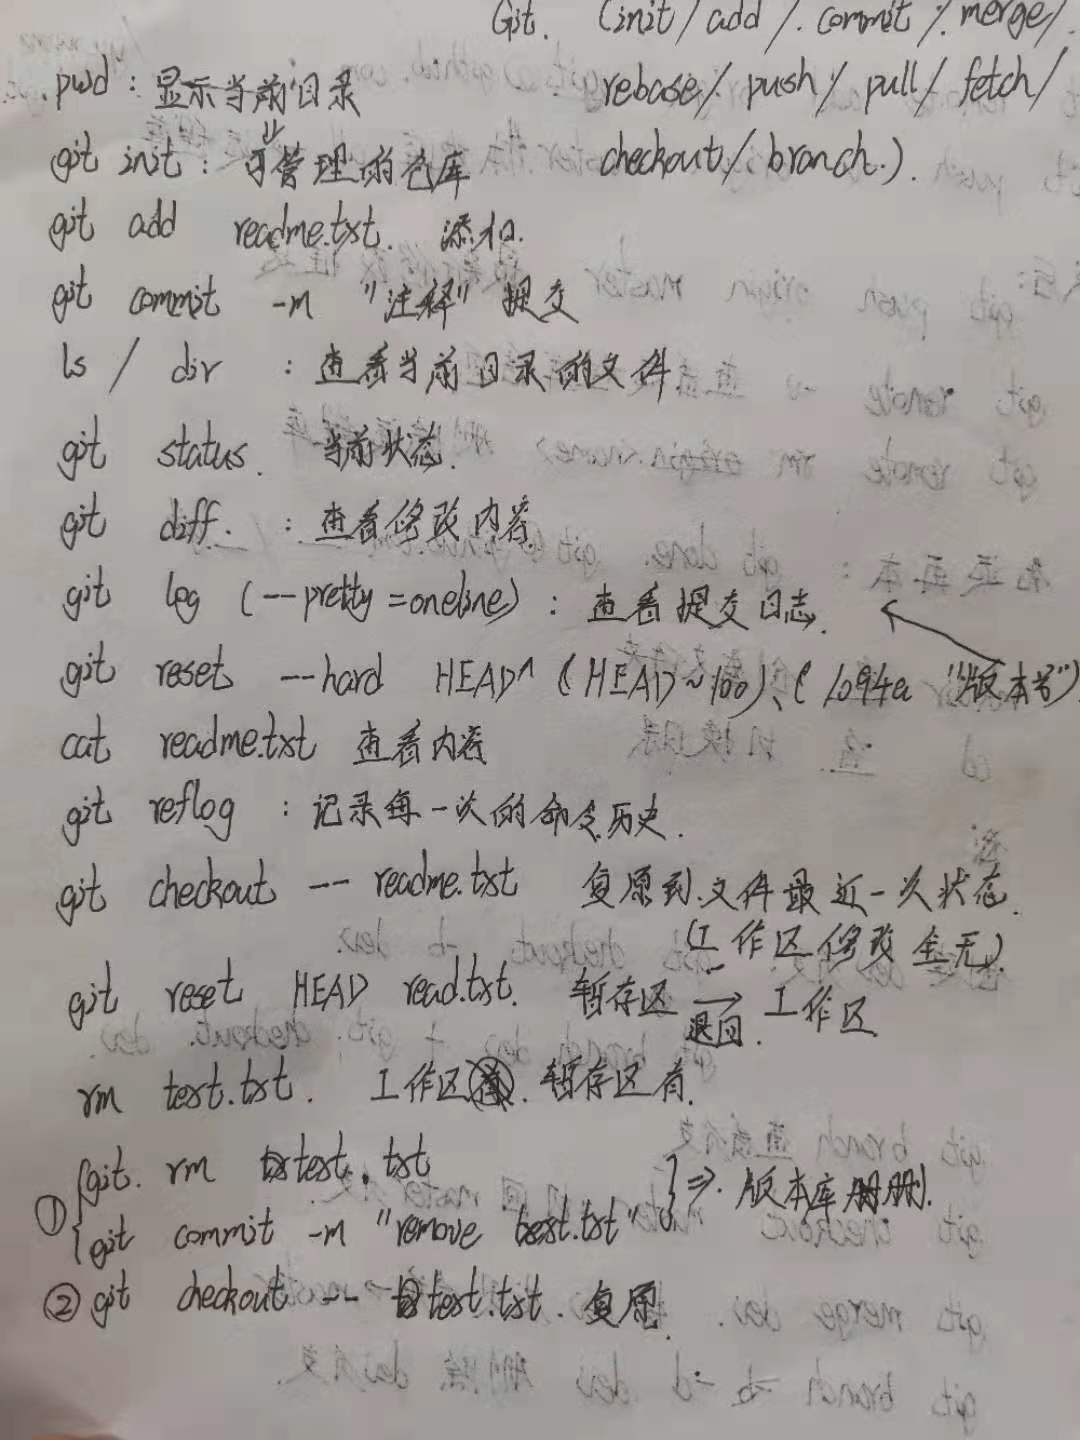 Git. (init/ add /. commit /. merge/.
pwd : 显示当前目录 rebase/. push/ pull/ fetch/
git init : 可管理的仓库 checkout/ branch.).
git add readme.txt. 添加.
git commit -m "注释" 提交
ls / dir : 查看当前目录的文件.
git status. 当前状态.
git diff. : 查看修改内容.
git log (--pretty=oneline) : 查看提交日志.
git reset --hard HEAD^ (HEAD~100)、( 1094a "版本号")
cat readme.txt 查看内容
git reflog : 记录每一次的命令历史.
git checkout -- readme.txt 复原到文件最近一次状态.
(工作区修改全无).
git reset HEAD read.txt. 暂存区 → 工作区
退回.
rm test.txt. 工作区 . 暂存区有.
① git. rm test.txt
git commit -m "remove test.txt" ⇒. 版本库删.
② git checkout -- test.txt. 复原.